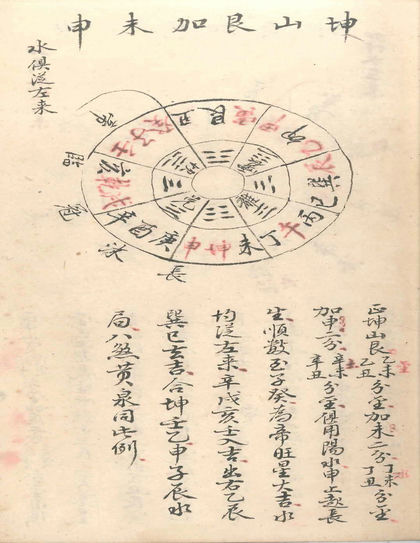 坤山艮加未申
水俱從左来
丑 艮 寅 甲 卯 乙 辰 巽 巳 丙 午 丁 未 坤 申 庚 酉 辛 戌 乾 亥 壬 子 癸
帝
冠
沐
長
正坤山艮乙未分金加未二分丁未丁丑分金
加申二分辛未辛丑分金俱用陽水申上起長
生順數至子癸為帝旺星大吉水
均從左来辛戌亥壬入吉出右乙辰
巽巳去吉合坤壬乙申子辰水
局八煞黃泉同此例